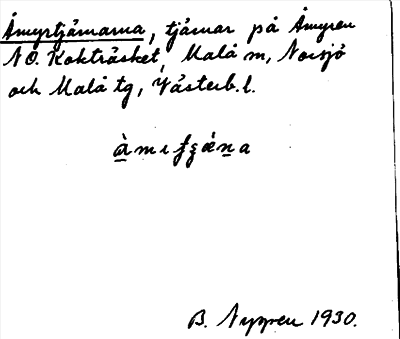 Åmyrtjärnarna, tjärnar på Åmyren
NO. Kokträsket, Malå m, Norsjö
och Malå tg, Västerb. l.
B. Nygren 1930.